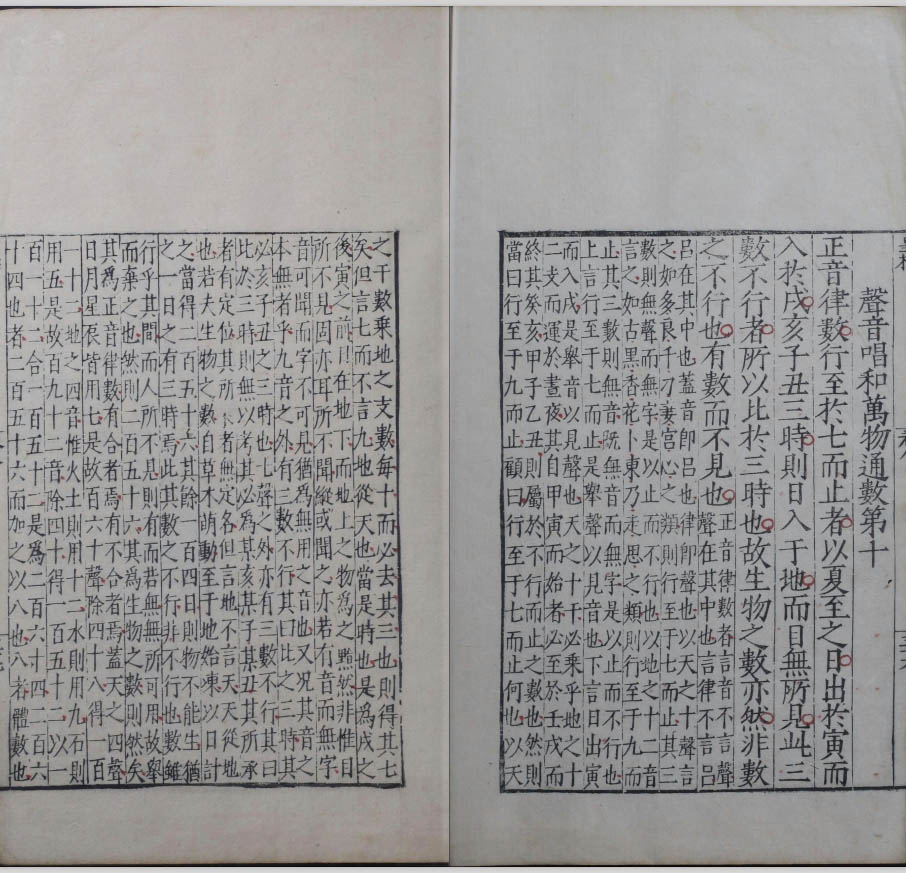 聲音唱和萬物通數第十
正音律數行至於七而止者以夏至之日出於寅而
入於戌亥子丑三時則日入于地而目無所見此三
數不行者所以比於三時也故生物之數亦然非數
之不行也有數而不見也
正音律數者言音不言聲
聲在其中也言律不言呂
呂在其中也蓋音即呂也律即聲也以天之十聲言
之如多良千刀妻宮心之類則行至于七而止其三
數則無聲而無字是以止而不行也以地之十二音
言之如古黑香花卜東乃走思之類則行至于九而
止其三數則無音既無音而無字是以止而不行也
上言行至于七而止是舉聲以見音也下言日出寅
而入戌是舉音以見聲也天之十干必乘乎地之十
二支而運於晝夜其自甲寅而始者必至於壬戌而
終其癸亥甲子乙丑則屬於不行而止之數也然則
當曰行至于九而止顧曰行至于七而止何也以天
之干數乘地之支數每十而必去其三也則得其七
矣但言七而不言九地從天也當是時也是爲戌之
後寅之前日在地下而地上之物爲之黯然非惟目
所不見固亦耳所不聞縱或聞之亦若有音而無字
音可聞而字不可見猶爲無用之音也又况音其
本無者乎九音之外有三數不行其曰比之三時曰
必亥子丑之三時也七聲之外亦有三數不行其曰
比於三時則無以考其必爲某亥某子某丑其所承
者有定位其所者無定名但言地不言天天從地
也若夫生物之數自草木萌動至于地始凍以日計
之當得二百五十六其餘一百四日則物不能生猶
之一日之有三時焉此其數之不行非不行也數雖
行乎其間而人所不見則有而若無無所可用故舉
而棄之也然則二百五十六爲生物之數則然矣
其爲正音律數有合者焉有不合者焉蓋天之四聲
日月星辰皆用七是故百六十聲除四十八得一百
一十二地之四音惟火土則用十二水則用九石則
用五是故百九十二音除四十得一百五十二以一
百一十二合一百五十二是爲二百六十四二百六
十四也者二百五十六而加之以八也八者體數也